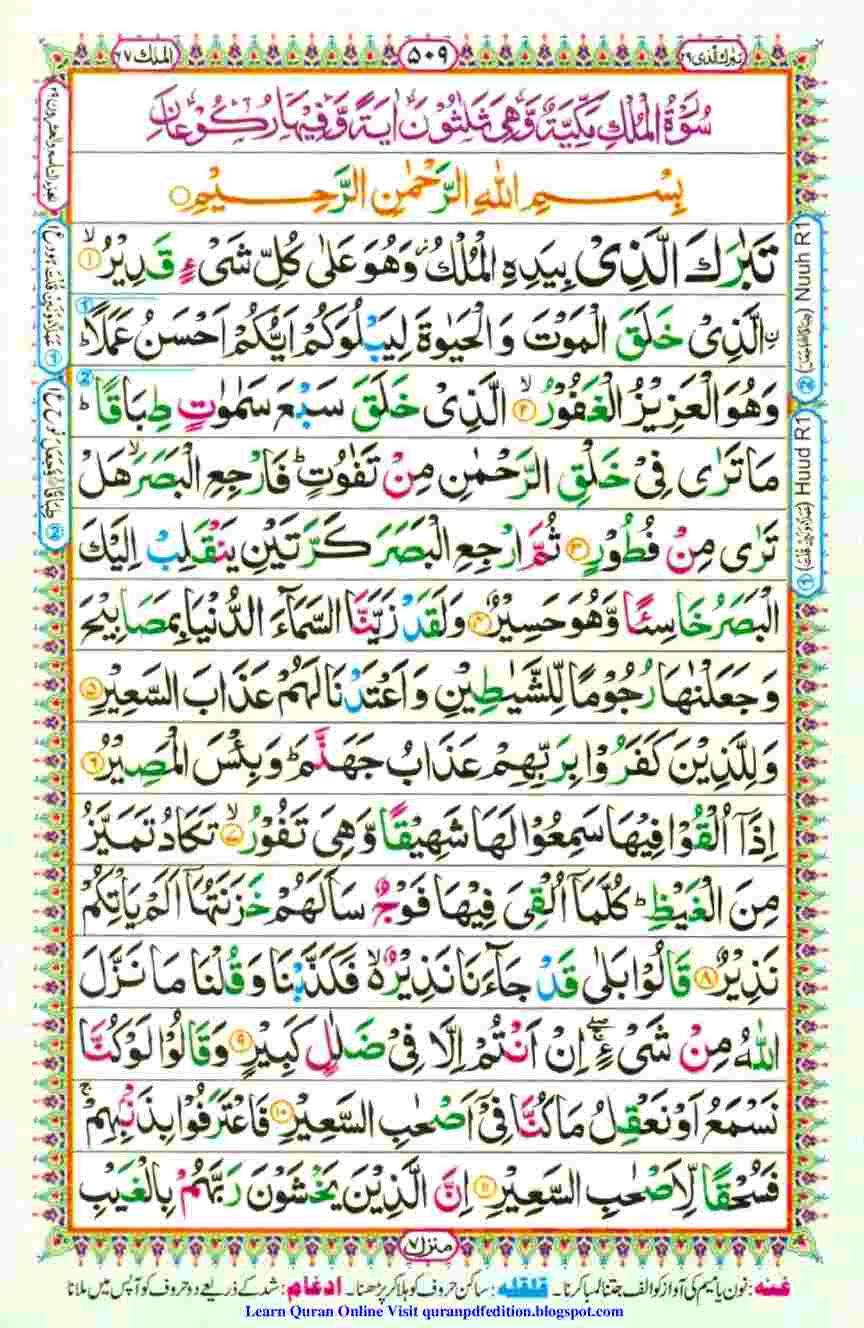 تبٰرك الذی ٢٩
٥٠٩
الملك ٦٧
سُوْرَةُ الْمُلْكِ مَكِّيَّةٌ وَّهِيَ ثَلٰثُوْنَ اٰيَةً وَّفِيْهَا رُكُوْعَانِ
بِسْمِ اللهِ الرَّحْمٰنِ الرَّحِيْمِ
تَبٰرَكَ الَّذِيْ بِيَدِهِ الْمُلْكُ ؗ وَهُوَ عَلٰى كُلِّ شَيْءٍ قَدِيْرُ ۙ‏﴿١﴾
ۨالَّذِيْ خَلَقَ الْمَوْتَ وَ الْحَيٰوةَ لِيَبْلُوَكُمْ اَيُّكُمْ اَحْسَنُ عَمَلًا ؕ
وَهُوَ الْعَزِيْزُ الْغَفُوْرُ ۙ‏﴿٢﴾ الَّذِيْ خَلَقَ سَبْعَ سَمٰوٰتٍ طِبَاقًا ؕ
مَا تَرٰى فِيْ خَلْقِ الرَّحْمٰنِ مِنْ تَفٰوُتٍ ؕ فَارْجِعِ الْبَصَرَ ۙ هَلْ
تَرٰى مِنْ فُطُوْرٍ ﴿٣﴾ ثُمَّ ارْجِعِ الْبَصَرَ كَرَّتَيْنِ يَنْقَلِبْ اِلَيْكَ
الْبَصَرُ خَاسِئًا وَّهُوَ حَسِيْرٌ ﴿٤﴾ وَلَقَدْ زَيَّنَّا السَّمَآءَ الدُّنْيَا بِمَصَابِيْحَ
وَجَعَلْنٰهَا رُجُوْمًا لِّلشَّيٰطِيْنِ وَاَعْتَدْنَا لَهُمْ عَذَابَ السَّعِيْرِ ﴿٥﴾
وَلِلَّذِيْنَ كَفَرُوْا بِرَبِّهِمْ عَذَابُ جَهَنَّمَ ؕ وَبِئْسَ الْمَصِيْرُ ﴿٦﴾
اِذَاۤ اُلْقُوْا فِيْهَا سَمِعُوْا لَهَا شَهِيْقًا وَّهِيَ تَفُوْرُ ۙ‏﴿٧﴾ تَكَادُ تَمَيَّزُ
مِنَ الْغَيْظِ ؕ كُلَّمَاۤ اُلْقِيَ فِيْهَا فَوْجٌ سَاَلَهُمْ خَزَنَتُهَاۤ اَلَمْ يَاْتِكُمْ
نَذِيْرٌ ﴿٨﴾ قَالُوْا بَلٰى قَدْ جَآءَنَا نَذِيْرٌ ۙ فَكَذَّبْنَا وَقُلْنَا مَا نَزَّلَ
اللهُ مِنْ شَيْءٍ ۖۚ اِنْ اَنْتُمْ اِلَّا فِيْ ضَلٰلٍ كَبِيْرٍ ﴿٩﴾ وَقَالُوْا لَوْ كُنَّا
نَسْمَعُ اَوْ نَعْقِلُ مَا كُنَّا فِيْۤ اَصْحٰبِ السَّعِيْرِ ﴿١٠﴾ فَاعْتَرَفُوْا بِذَنْۢبِهِمْ ۚ
فَسُحْقًا لِّاَصْحٰبِ السَّعِيْرِ ﴿١١﴾ اِنَّ الَّذِيْنَ يَخْشَوْنَ رَبَّهُمْ بِالْغَيْبِ
Nuuh R1
Huud R1
منزل ٧
غنه: نون یا میم کی آواز کو الف جتنا لمبا کرنا۔ قلقله: ساکن حروف کو ہلا کر پڑھنا۔ ادغام: شد کے ذریعے دو حروف کو آپس میں ملانا
Learn Quran Online Visit quranpdfedition.blogspot.com